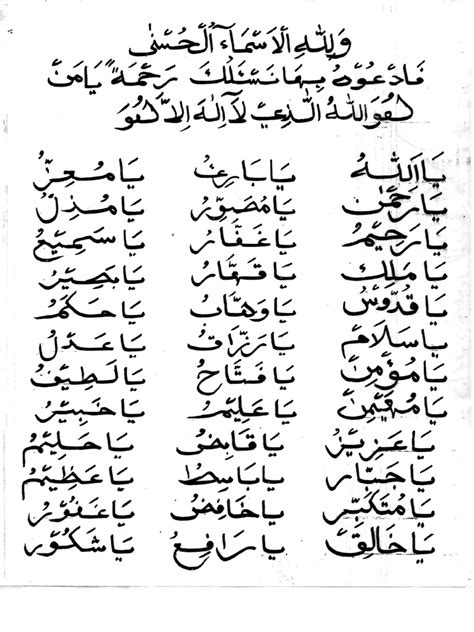 وَلِلّٰهِ الْاَسْمَآءُ الْحُسْنٰى
فَادْعُوْهُ بِهَا نَسْئَلُكَ رَحْمَةً يَامَنْ
هُوَ اللهُ الَّذِيْ لَآ اِلٰهَ اِلَّا هُوَ
يَا اَللهُ يَا بَارِئُ يَا مُعِزُّ
يَا رَحْمٰنُ يَا مُصَوِّرُ يَا مُذِلُّ
يَا رَحِيْمُ يَا غَفَّارُ يَا سَمِيْعُ
يَا مَلِكُ يَا قَهَّارُ يَا بَصِيْرُ
يَا قُدُّوْسُ يَا وَهَّابُ يَا حَكَمُ
يَا سَلَامُ يَا رَزَّاقُ يَا عَدْلُ
يَا مُؤْمِنُ يَا فَتَّاحُ يَا لَطِيْفُ
يَا مُهَيْمِنُ يَا عَلِيْمُ يَا خَبِيْرُ
يَا عَزِيْزُ يَا قَابِضُ يَا حَلِيْمُ
يَا جَبَّارُ يَا بَاسِطُ يَا عَظِيْمُ
يَا مُتَكَبِّرُ يَا خَافِضُ يَا غَفُوْرُ
يَا خَالِقُ يَا رَافِعُ يَا شَكُوْرُ